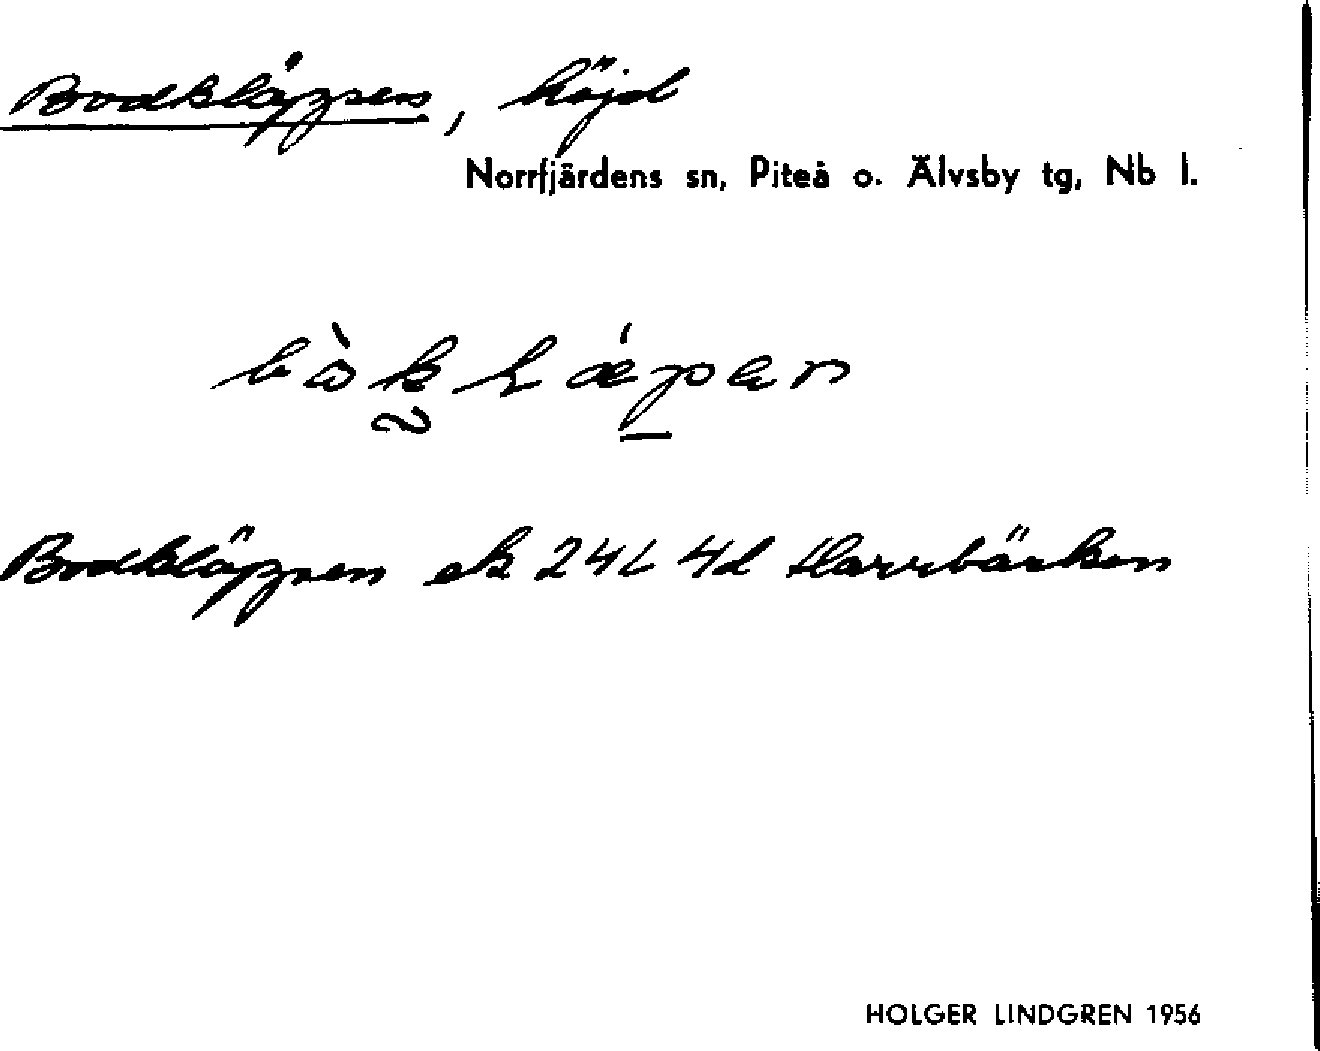 Bodkläppen, höjd
Norrfjärdens sn, Piteå o. Älvsby tg, Nb l.
Bodkläppen ek 24L 4d Harrbäcken
HOLGER LINDGREN 1956